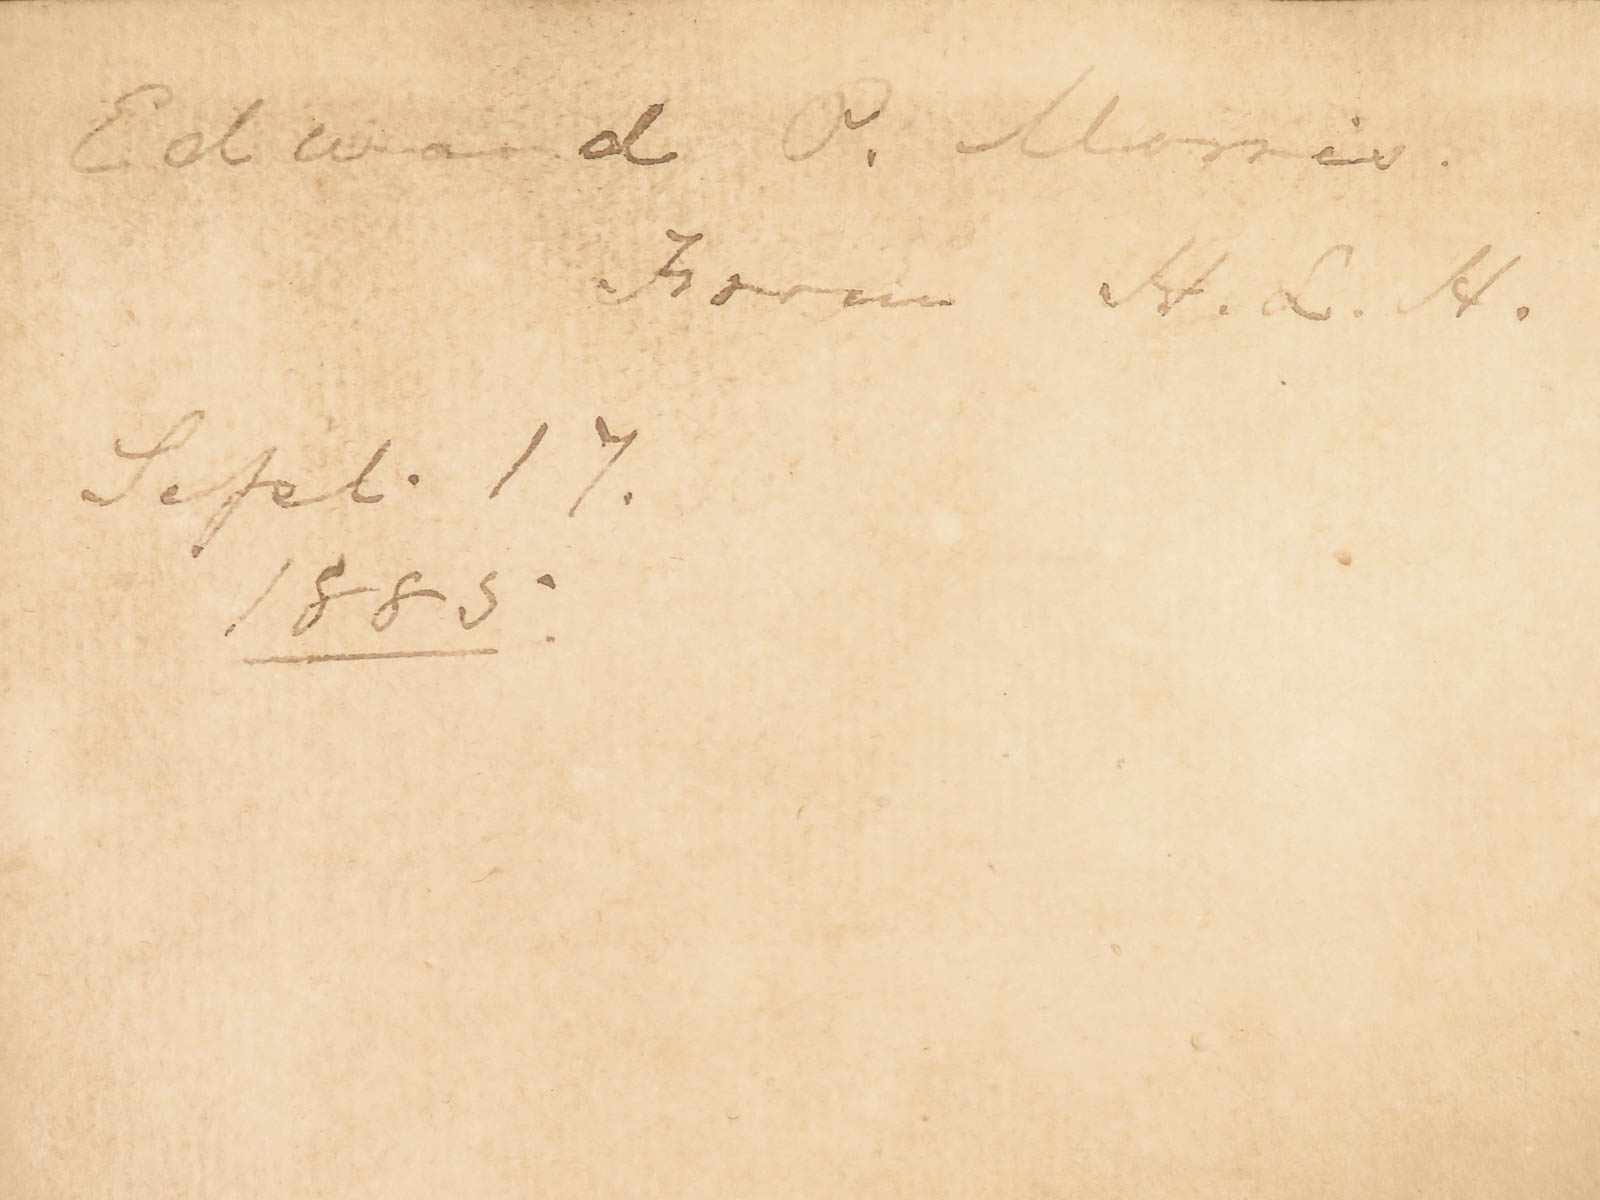 Edward P. Morris.
From H. L. H.
Sept. 17.
1885.